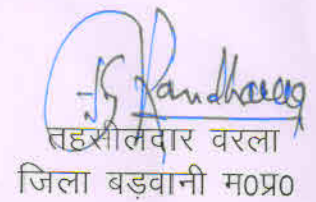 तहसीलदार वरला
जिला बड़वानी म०प्र०